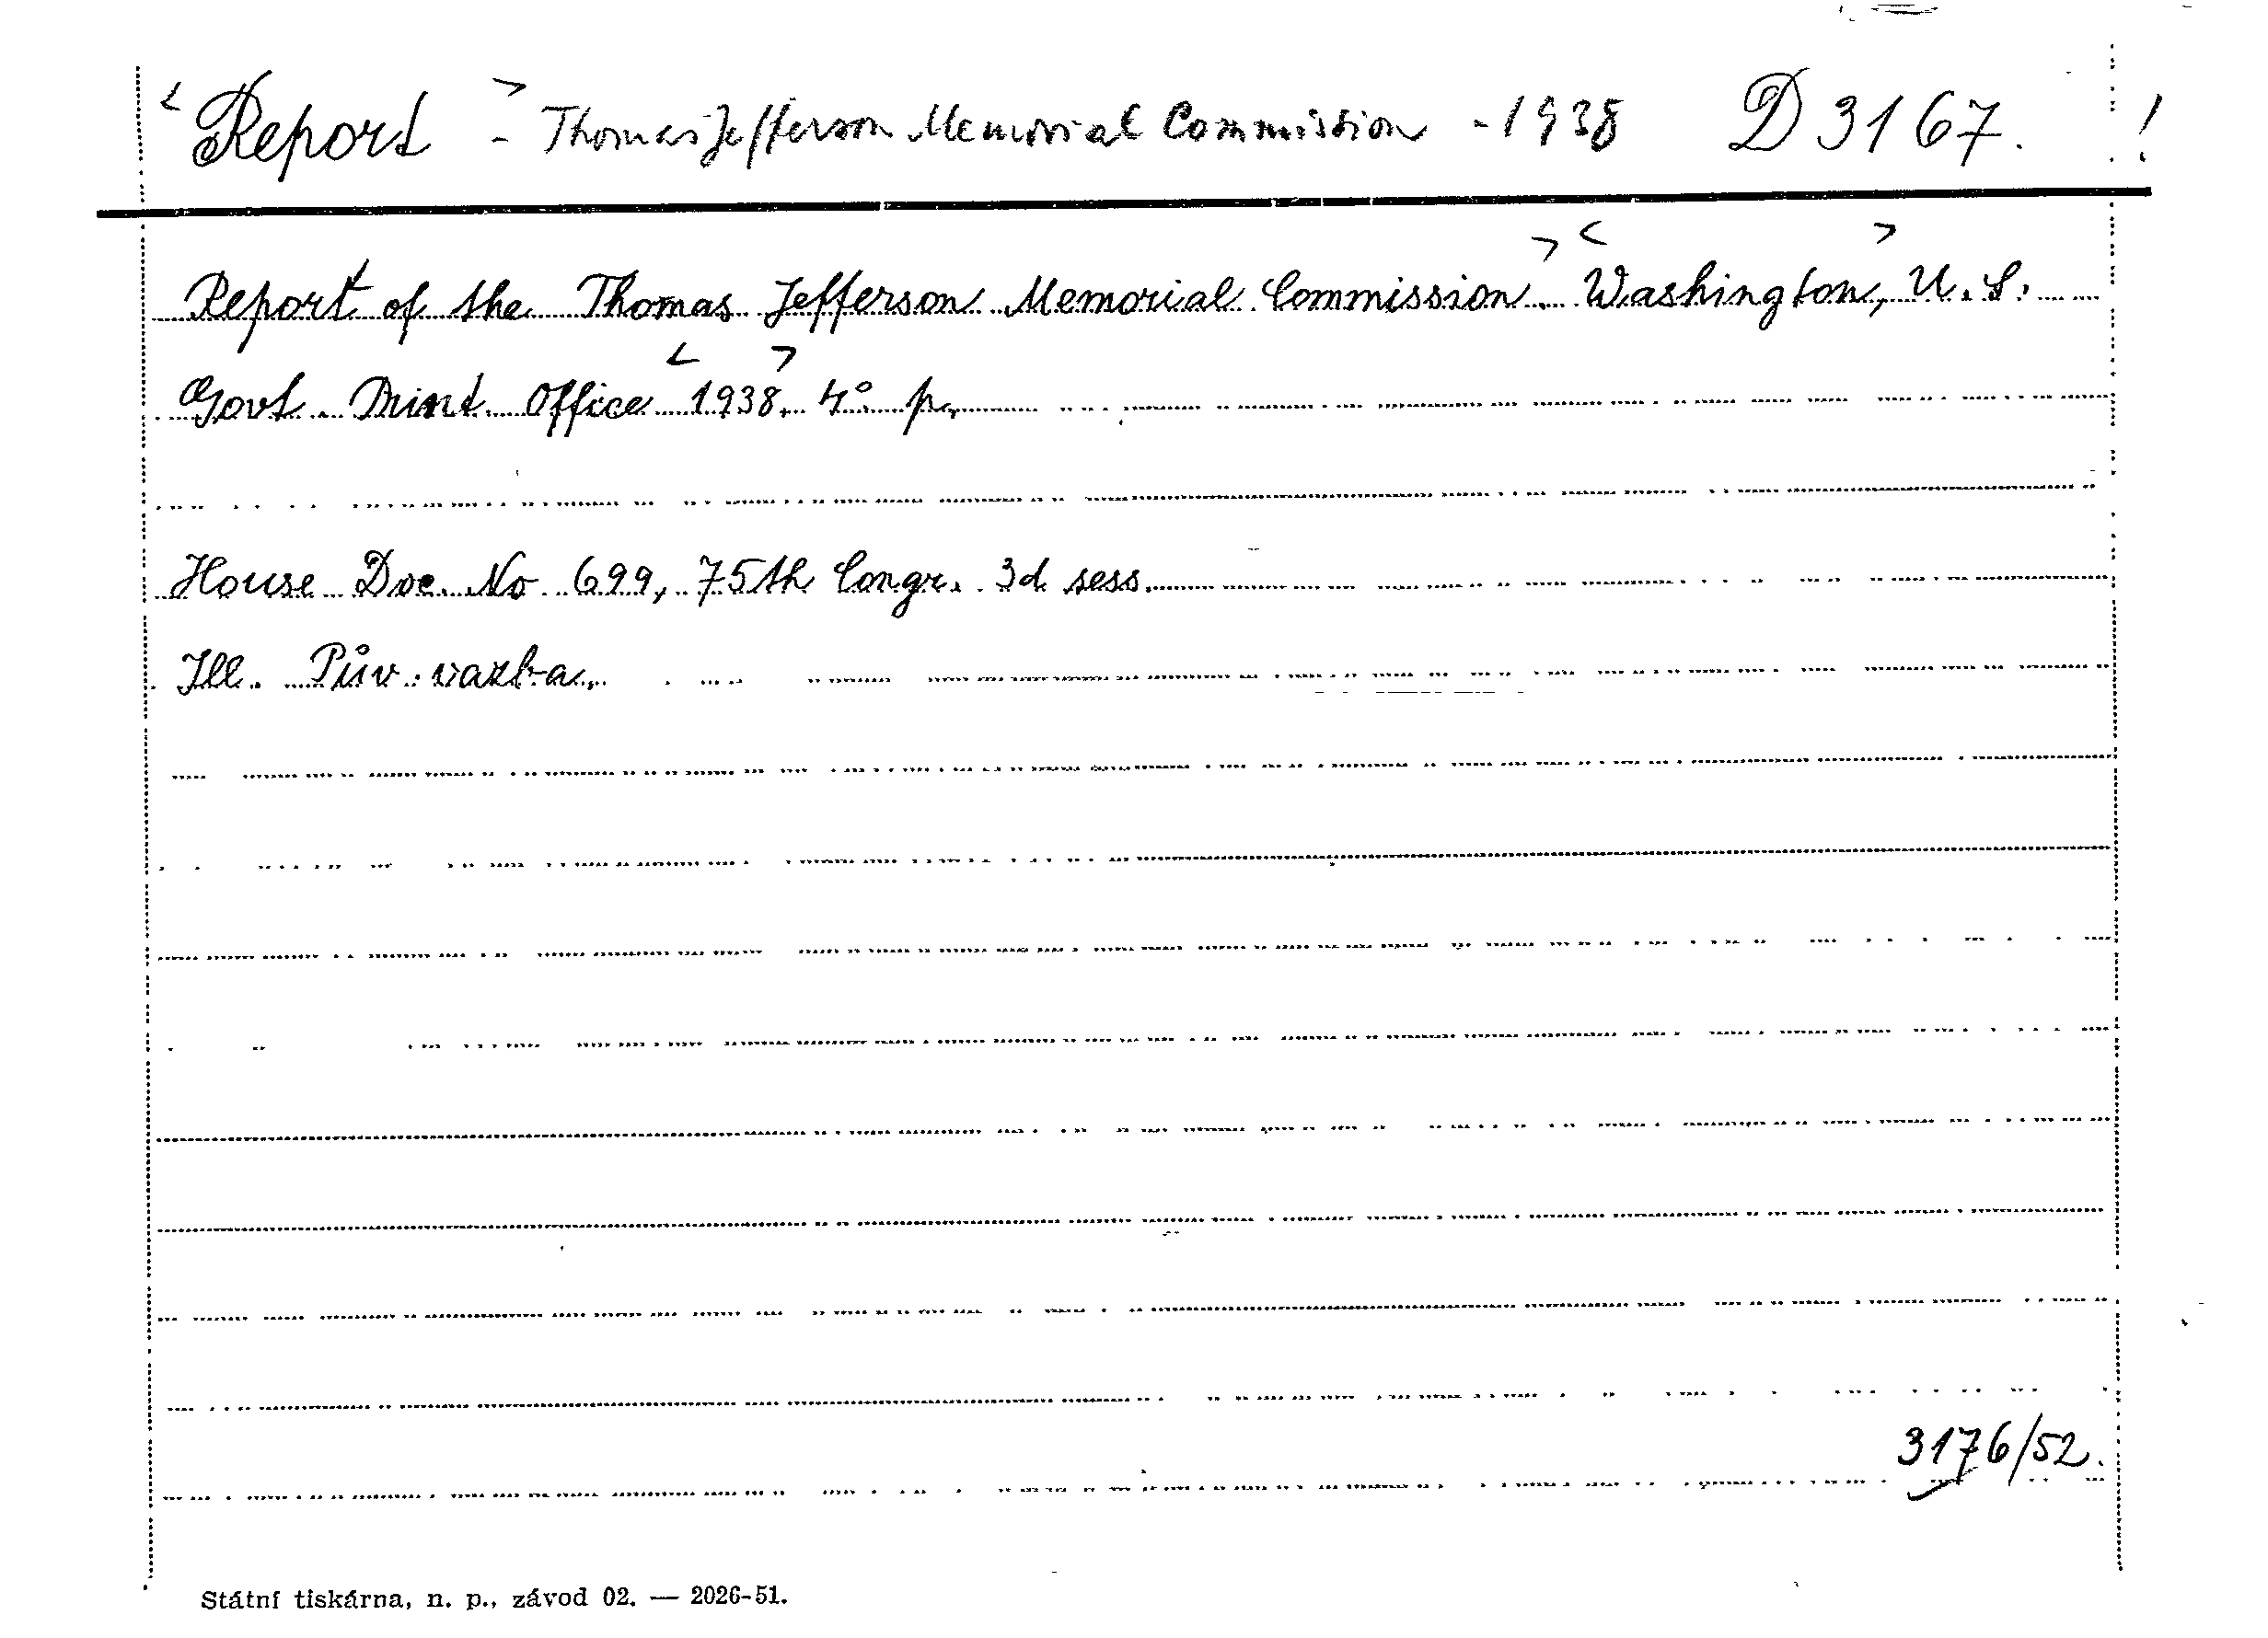 < Report > - Thomas Jefferson Memorial Commission - 1938 D 3167. !
Report of the Thomas Jefferson Memorial Commission.> <Washington,> U. S.
Govt. Print. Office <1938.> 4° p.
House Doc. No 699, 75th Congr. 3d sess.
Ill. Pův. vazba.
3176/52.
Státní tiskárna, n. p., závod 02. — 2026-51.